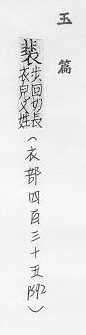 玉篇
裴步回切長衣皃又姓(衣部四百三十五)